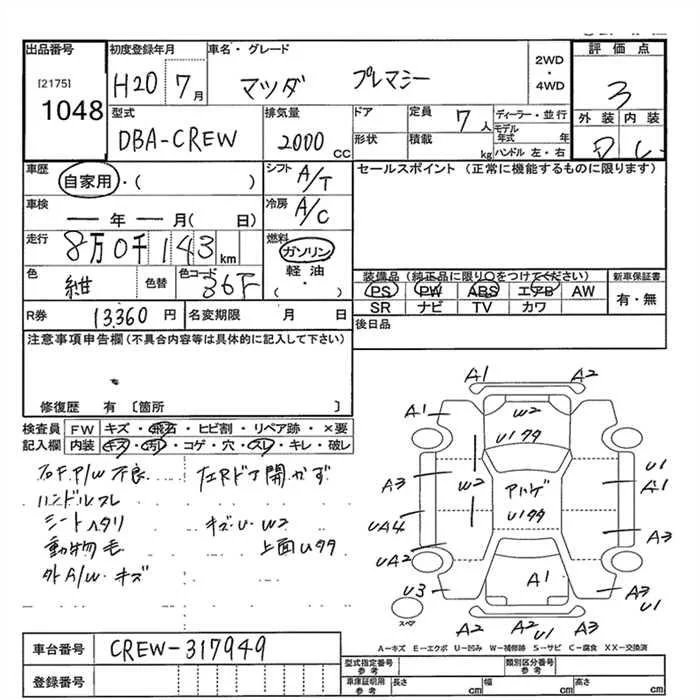 出品番号
[2175]
1048
初度登録年月
H20 7月
車名・グレード
マツダ プレマシー
2WD
・
4WD
評価点
3
外装 内装
D
型式
DBA-CREW
排気量
2000 CC
ドア
形状
定員 7人
積載 kg
ディーラー・並行
モデル年式 年
ハンドル 左・右
車歴
自家用・( )
シフト A/T
セールスポイント (正常に機能するものに限ります)
車検
ー年ー月( 日)
冷房 A/C
走行
8万0千143km
燃料
ガソリン
軽油
( ・ )
色
紺
色替
色コード
36F
装備品 (純正品に限り○をつけてください)
新車保証書
PS PW ABS エアB AW
有・無
SR ナビ TV カワ
R券 13,360円
名変期限 月 日
後日品
注意事項申告欄(不具合内容等は具体的に記入して下さい)
修復歴 有 [箇所 ]
検査員記入欄
FW キズ・飛石・ヒビ割・リペア跡・×要
内装 キズ・汚れ・コゲ・穴・スレ・キレ・破レ
右F P/W 不良
左Rドア開かず
ハンドルスレ
シートハタリ
キズ・U・W2
動物毛
上面Uタタ
外A/W・キズ
A1 A2
A1 W2
Uタタ
A3 W2 アハゲ U1 A1
Uタタ
UA4 A3
UA2
U3 A1 A3 U1
スペア
A2 A2 U1 A3
A-キズ E-エクボ U-凹み W-補修跡 S-サビ C-腐食 XX-交換済
車台番号 CREW-317949
登録番号
型式指定番号 参考
類別区分番号 参考
車庫証明用 参考
長さ cm 幅 cm 高さ cm